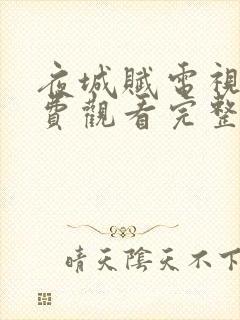 夜城賦電視
費觀看完整
晴天陰天不下